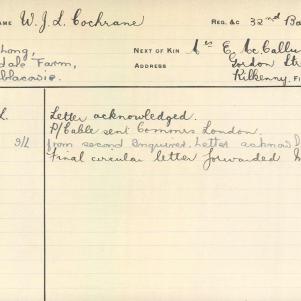 AME W. J. L. Cochrane REG. &C 32nd Ba
Long, NEXT OF KIN Mrs E. McCallu
dale Farm, ADDRESS Gordon Str
blacowie. Kilkenny, Fi
L. Letter acknowledged.
P/Cable sent Commrs London.
9/L from second enquirer. Letter acknow D
Final circular letter forwarded